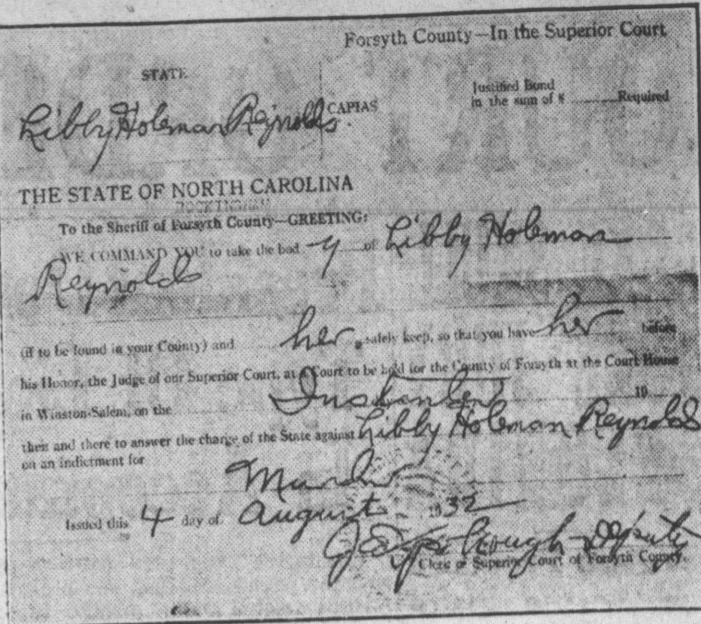 Forsyth County—In the Superior Court
STATE
Justified Bond
in the sum of $ Required
CAPIAS
Libby Holeman Reynolds.
THE STATE OF NORTH CAROLINA
ROCKINGHAM
To the Sheriff of Forsyth County—GREETING:
WE COMMAND YOU to take the bod y of Libby Holeman
Reynolds
(if to be found in your County) and her safely keep, so that you have her before
his Honor, the Judge of our Superior Court, at a Court to be held for the County of Forsyth at the Court House
in Winston-Salem, on the Instanter 19
then and there to answer the charge of the State against Libby Holeman Reynolds
on an indictment for
Murder
Issued this 4 day of August 1932
Deputy
Clerk of Superior Court of Forsyth County.